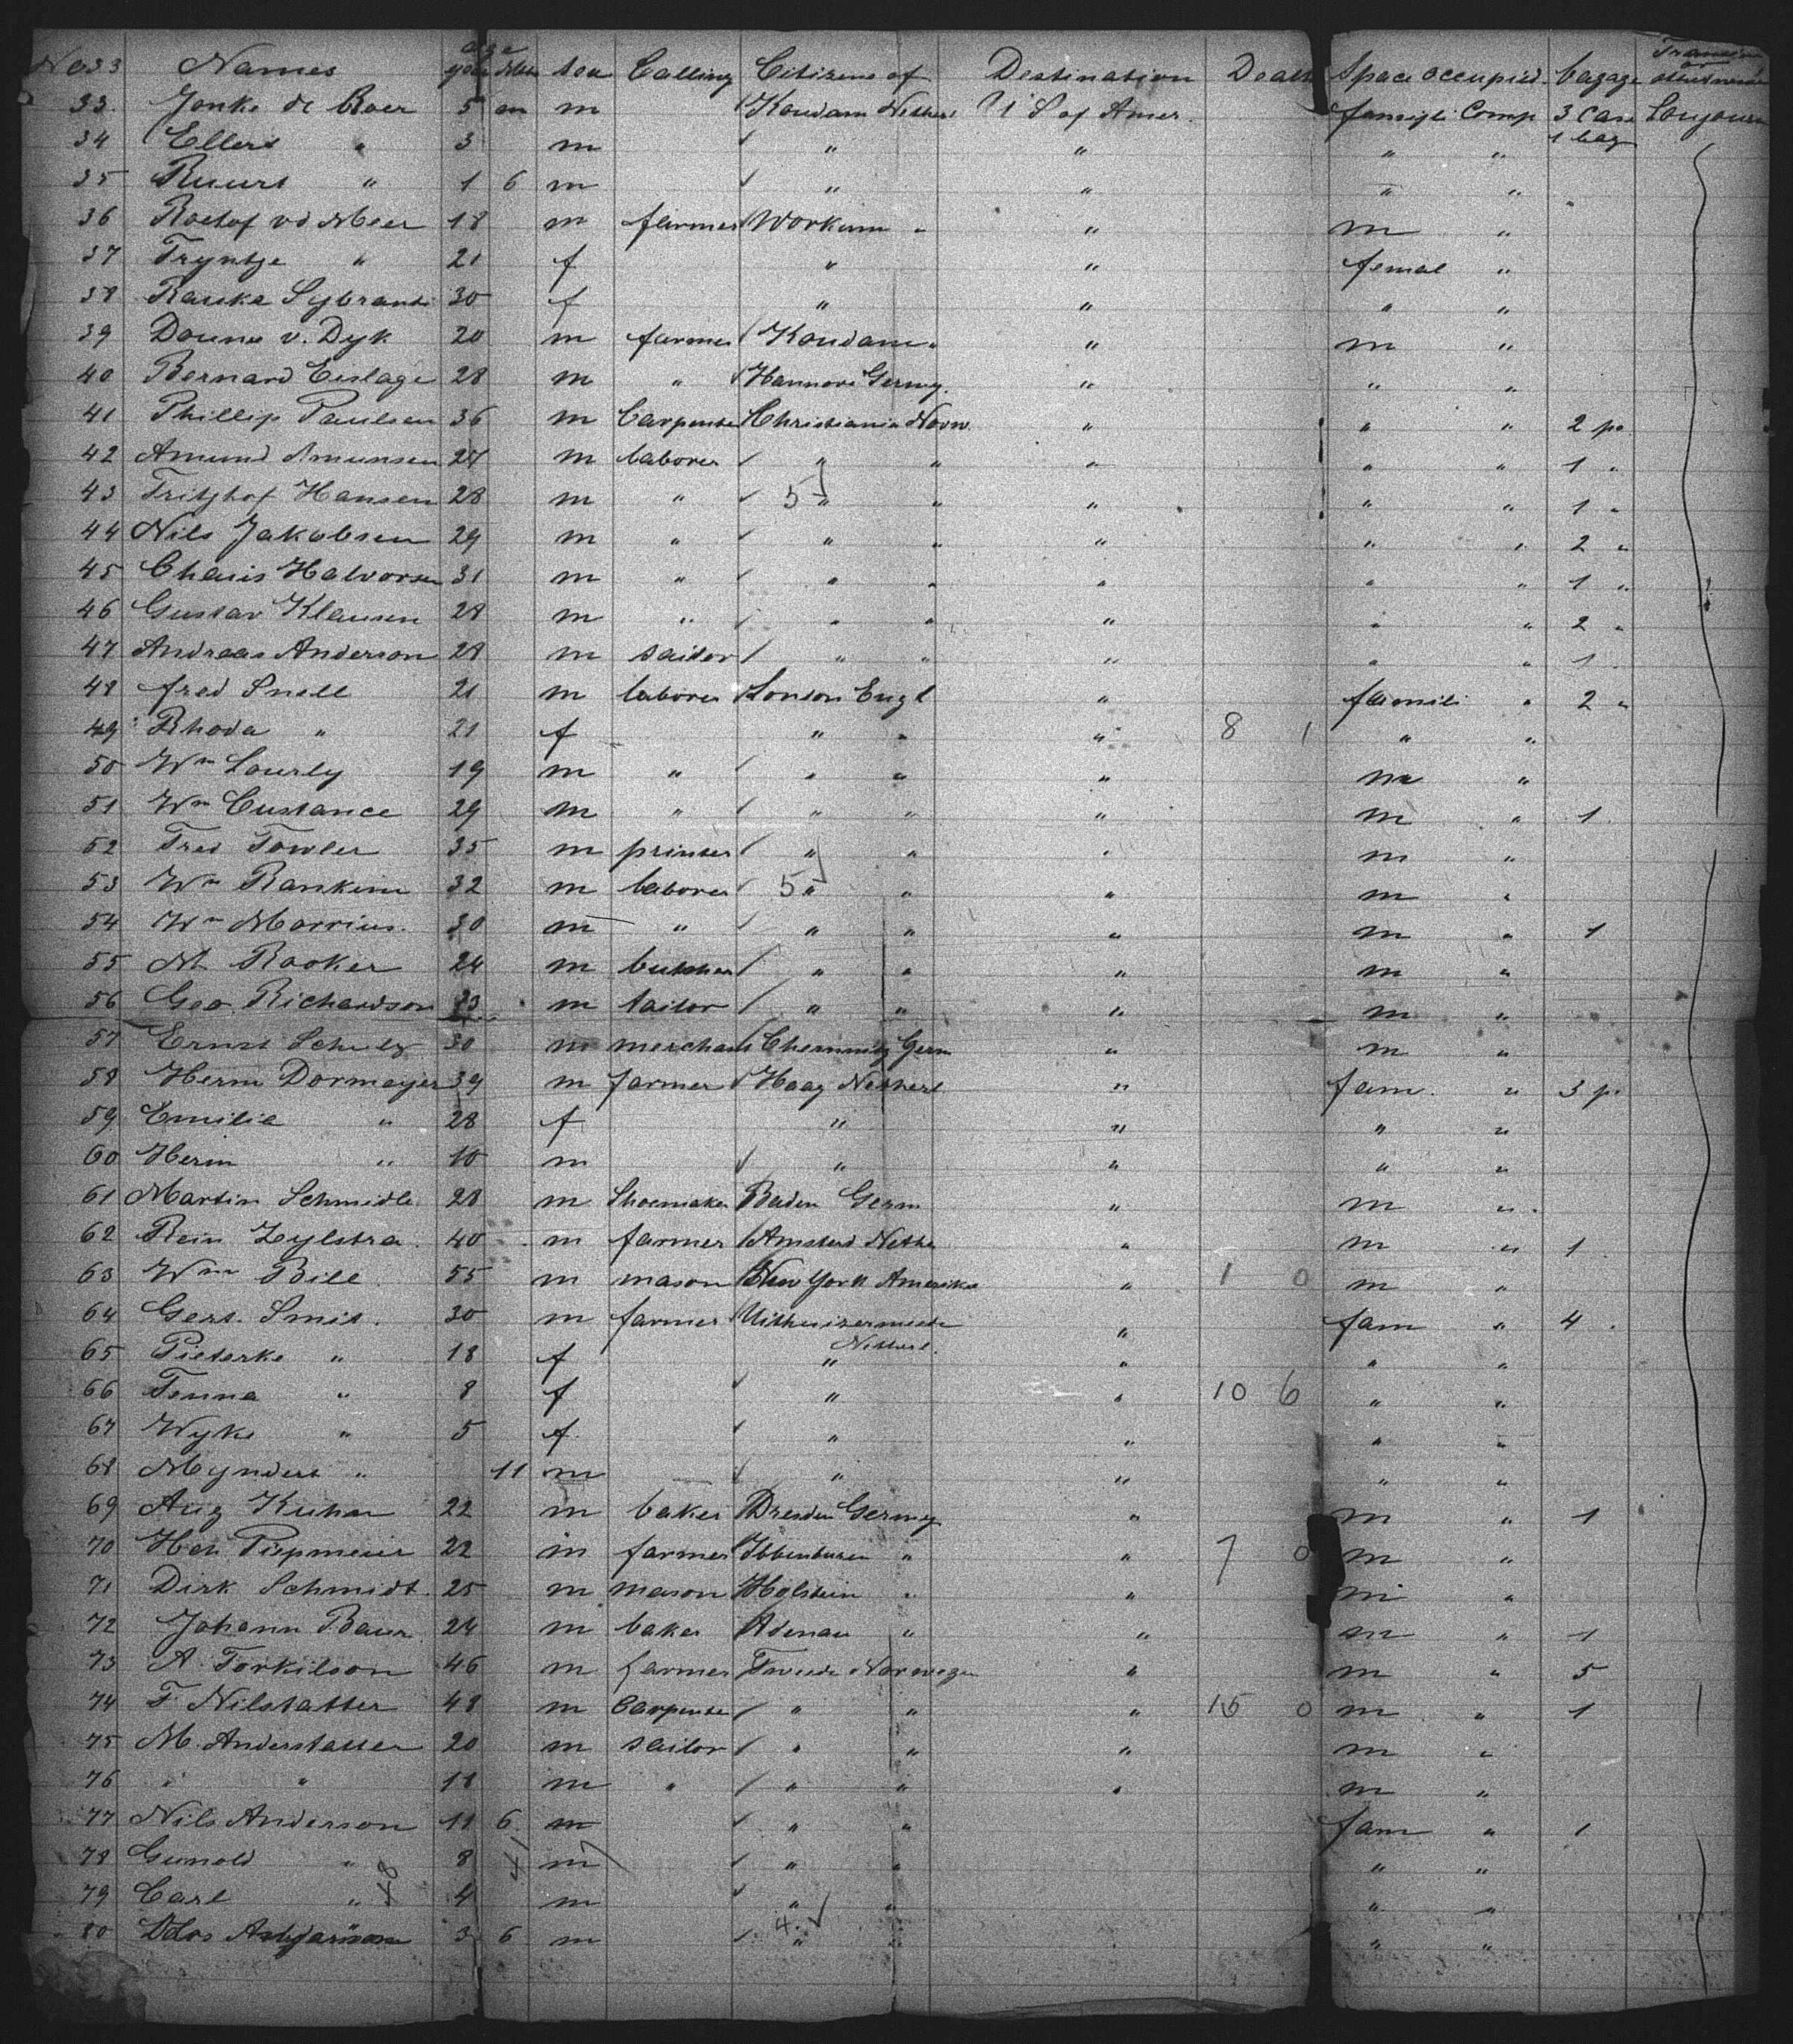 No 33 Names age years Mths sex Calling Citizens of Destination Death Space occupied bagage Transien or
33. Jonke de Boer 5 m Koudam Netherl U S of Amer. Comp 3 Case
34 Ellert " 3 m " " " " 1 bag
35 Ruurt " 1 6 m " " " "
36 Roelof vd Meer 18 m farmer Workum " " m "
37 Tryntje " 21 f " " femal "
38 Rauke Sybrant 30 f " " " "
39 Douwe v. Dyk 20 m farmer Koudam " " m "
40 Bernard Eeslage 28 m " Hannove Germy. " " "
41 Phillip Paulsen 36 m Carpenter Christiania Norw. " " " 2 po
42 Amund Amunsen 27 m laborer " " " " " 1 "
43 Fritzhof Hansen 28 m " 5 " " " " " 1 "
44 Nils Jakobsen 29 m " " " " " " 2 "
45 Charis Halvorsen 31 m " " " " " " 1 "
46 Gustav Klausen 28 m " " " " " " 2 "
47 Andreas Anderson 28 m sailor " " " " " 1
48 fred Snell 21 m laborer London Engl " famili " 2 "
49 Rhoda " 21 f " " " 8 1 " "
50 Wm Lourly 19 m " " " " m "
51 Wm Custance 29 m " " " " m " 1
52 Fred Fowler 35 m printer " " " m "
53 Wm Rankin 32 m laborer 5 " " " m "
54 Wm Marrius. 30 m " " " " m " 1
55 M. Rooker 24 m butcher " " " m "
56 Geo. Richardson 23 m tailor " " " m "
57 Ernst Schulz 30 m merchant Chemnitz Germ " m "
58 Herm Dormayer 39 m farmer Haag Netherl. " fam. " 3 p.
59 Emilie " 28 f " " " "
60 Herm " 10 m " " " "
61 Martin Schmidle 28 m Shoemaker Baden Germ " m "
62 Rein Zylstra 40 m farmer Amsterd Nethe " m " 1
63 Wm Bill 55 m mason New York Amerika " 1 0 m "
64 Gert. Smit. 30 m farmer Uithuizermeede " fam " 4
Netherl.
65 Pieterke " 18 f " " " "
66 Tenna " 8 f " " 10 6 " "
67 Wyke " 5 f " " " "
68 Myndert " 11 m " " " "
69 Aug Kuhn 22 m baker Dresden Germy " m " 1
70 Hch Piepmeier 22 m farmer Ibbenburen " " 7 0 m "
71 Dirk Schmidt 25 m mason Holstein " " m "
72 Johann Bauer 24 m baker Adenau " " m " 1
73 A. Torkilson 46 m farmer Tweede Norwegen " m " 5
74 T. Nilstatter 48 m Carpenter " " " 15 0 m " 1
75 M. Anderstatter 20 m sailor " " " m "
76 " " 18 m " " " " m "
77 Nils Anderson 11 6 m " " fam " 1
78 Gunold " 8 m " " " "
79 Carl " 4 m " " " "
80 3 6 m 4 " " " "